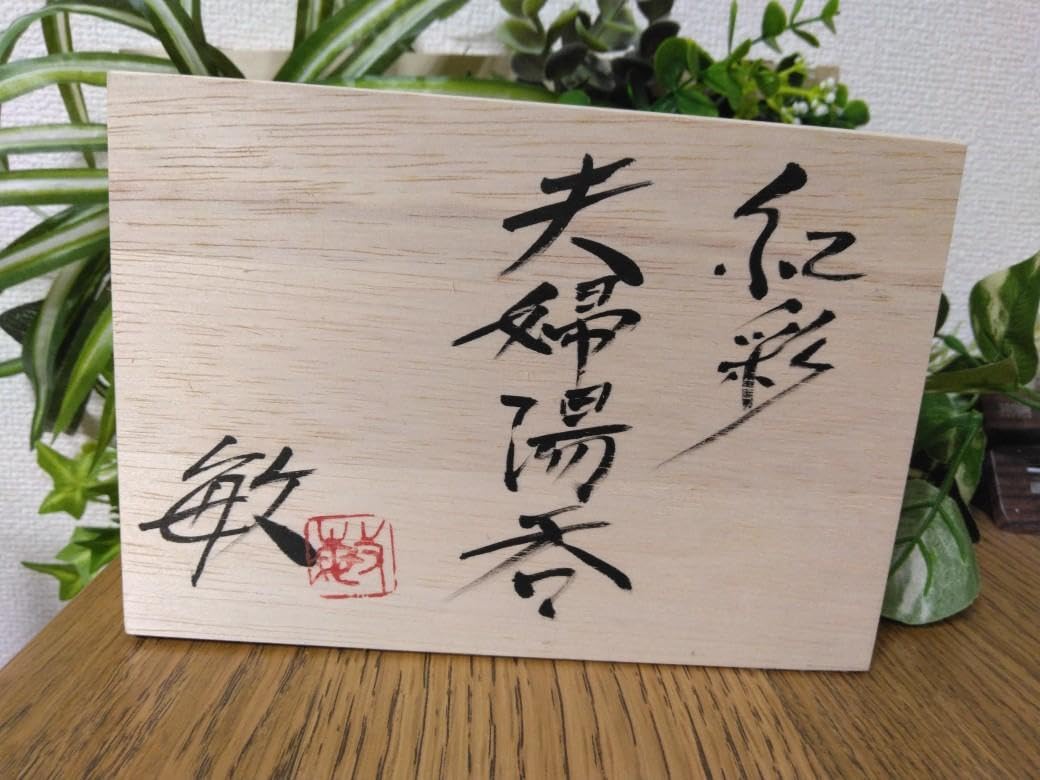 紅彩
夫婦湯呑
敏